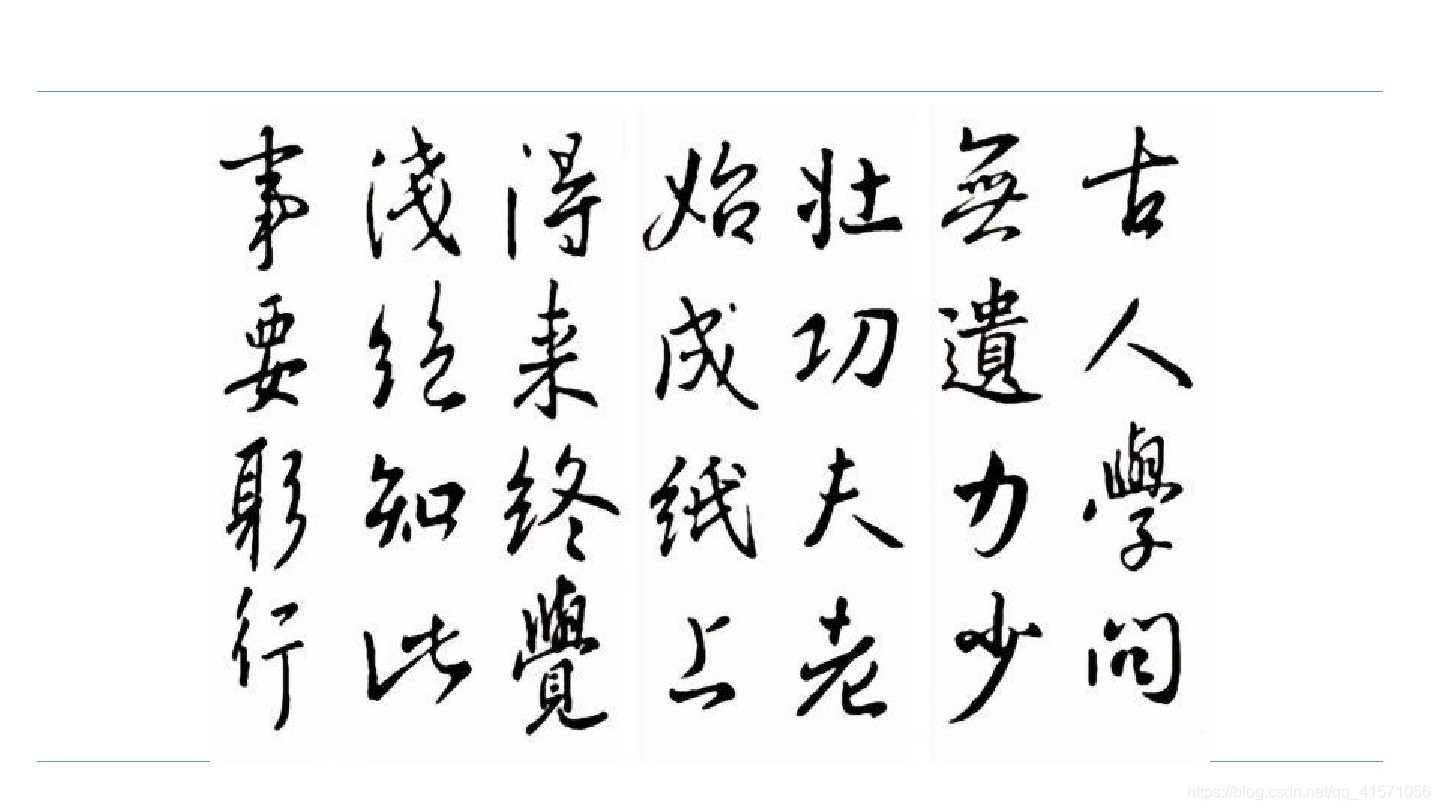 古人學問
無遺力少
壯功夫老
始成紙上
得来終覺
淺絕知此
事要躬行
https://blog.csdn.net/qq_41571056